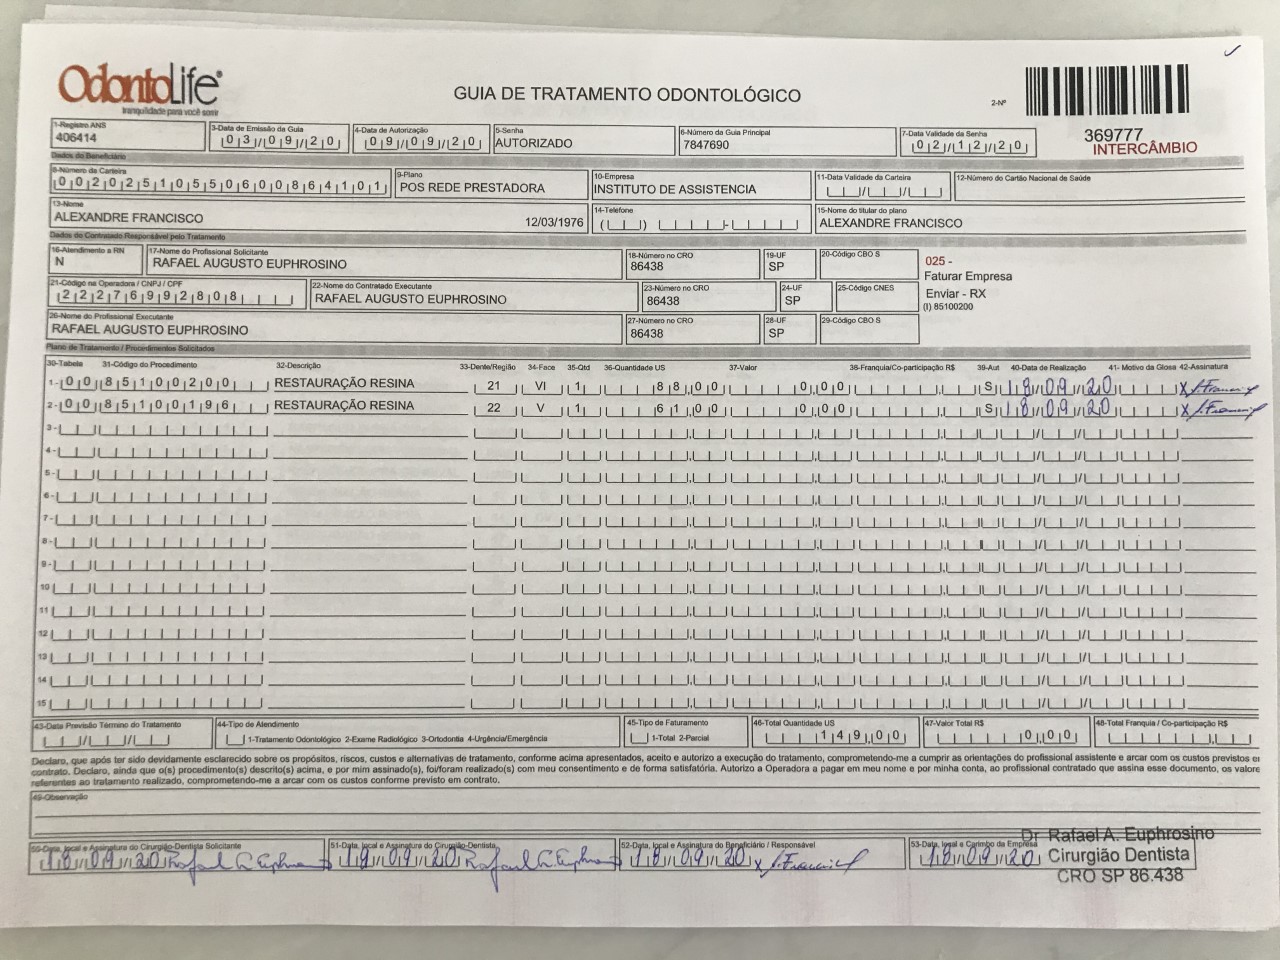 OdontoLife®
tranquilidade para você sorrir
GUIA DE TRATAMENTO ODONTOLÓGICO
2-Nº
369777
INTERCÂMBIO
1-Registro ANS
406414
3-Data de Emissão da Guia
03/09/20
4-Data de Autorização
09/09/20
5-Senha
AUTORIZADO
6-Número da Guia Principal
7847690
7-Data Validade da Senha
02/12/20
Dados do Beneficiário
8-Número da Carteira
00202510550600864101
9-Plano
POS REDE PRESTADORA
10-Empresa
INSTITUTO DE ASSISTENCIA
11-Data Validade da Carteira
12-Número do Cartão Nacional de Saúde
13-Nome
ALEXANDRE FRANCISCO 12/03/1976
14-Telefone
15-Nome do titular do plano
ALEXANDRE FRANCISCO
Dados do Contratado Responsável pelo Tratamento
16-Atendimento a RN
N
17-Nome do Profissional Solicitante
RAFAEL AUGUSTO EUPHROSINO
18-Número no CRO
86438
19-UF
SP
20-Código CBO S
025 -
Faturar Empresa
Enviar - RX
(I) 85100200
21-Código na Operadora / CNPJ / CPF
22276992808
22-Nome do Contratado Executante
RAFAEL AUGUSTO EUPHROSINO
23-Número no CRO
86438
24-UF
SP
25-Código CNES
26-Nome do Profissional Executante
RAFAEL AUGUSTO EUPHROSINO
27-Número no CRO
86438
28-UF
SP
29-Código CBO S
Plano de Tratamento / Procedimentos Solicitados
30-Tabela 31-Código do Procedimento 32-Descrição 33-Dente/Região 34-Face 35-Qtd 36-Quantidade US 37-Valor 38-Franquia/Co-participação R$ 39-Aut 40-Data de Realização 41- Motivo da Glosa 42-Assinatura
1- 00 85100200 RESTAURAÇÃO RESINA 21 VI 1 88,00 0,00 S 18/09/20 X
2- 00 85100196 RESTAURAÇÃO RESINA 22 V 1 61,00 0,00 S 18/09/20 X
3-
4-
5-
6-
7-
8-
9-
10
11
12
13
14
15
43-Data Previsão Término do Tratamento
44-Tipo de Atendimento
1-Tratamento Odontológico 2-Exame Radiológico 3-Ortodontia 4-Urgência/Emergência
45-Tipo de Faturamento
1-Total 2-Parcial
46-Total Quantidade US
149,00
47-Valor Total R$
0,00
48-Total Franquia / Co-participação R$
Declaro, que após ter sido devidamente esclarecido sobre os propósitos, riscos, custos e alternativas de tratamento, conforme acima apresentados, aceito e autorizo a execução do tratamento, comprometendo-me a cumprir as orientações do profissional assistente e arcar com os custos previstos
contrato. Declaro, ainda que o(s) procedimento(s) descrito(s) acima, e por mim assinado(s), foi/foram realizado(s) com meu consentimento e de forma satisfatória. Autorizo a Operadora a pagar em meu nome e por minha conta, ao profissional contratado que assina esse documento, os valore
referentes ao tratamento realizado, comprometendo-me a arcar com os custos conforme previsto em contrato.
49-Observação
50-Data, local e Assinatura do Cirurgião-Dentista Solicitante
18/09/20 Rafael A Euphrosino
51-Data, local e Assinatura do Cirurgião-Dentista
18/09/20 Rafael A Euphrosino
52-Data, local e Assinatura do Beneficiário / Responsável
18/09/20 X
53-Data, local e Carimbo da Empresa
18/09/20
Dr Rafael A. Euphrosino
Cirurgião Dentista
CRO SP 86.438